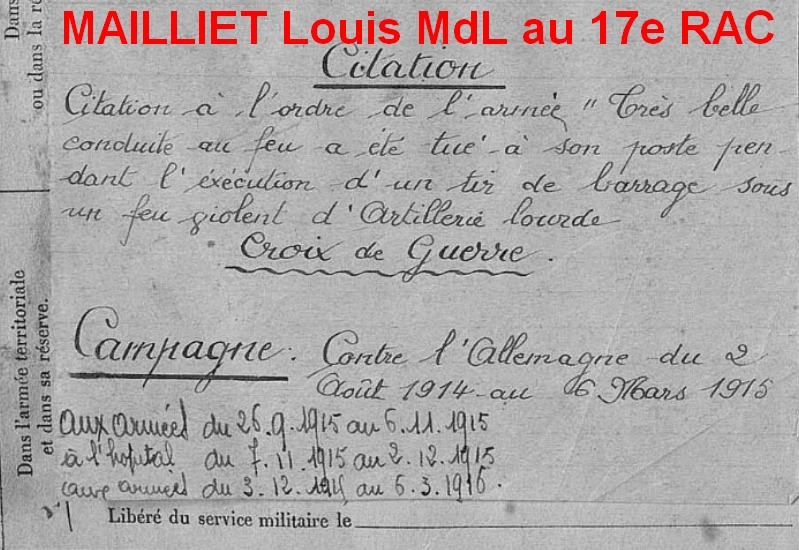 MAILLIET Louis MdL au 17e RAC
Dans
ou dans la ré
Citation
Citation à l'ordre de l'armée "Très belle
conduite au feu a été tué à son poste pen-
dant l'éxécution d'un tir de barrage sous
un feu violent d'Artillerie lourde
Croix de Guerre.
Dans l'armée territoriale
et dans sa réserve.
Campagne: Contre l'Allemagne du 2
Août 1914 au 6 Mars 1916
aux armées du 26.9.1915 au 6.11.1915
à l'hopital du 7.11.1915 au 2.12.1915
aux armées du 3.12.1915 au 6.3.1916.
Libéré du service militaire le